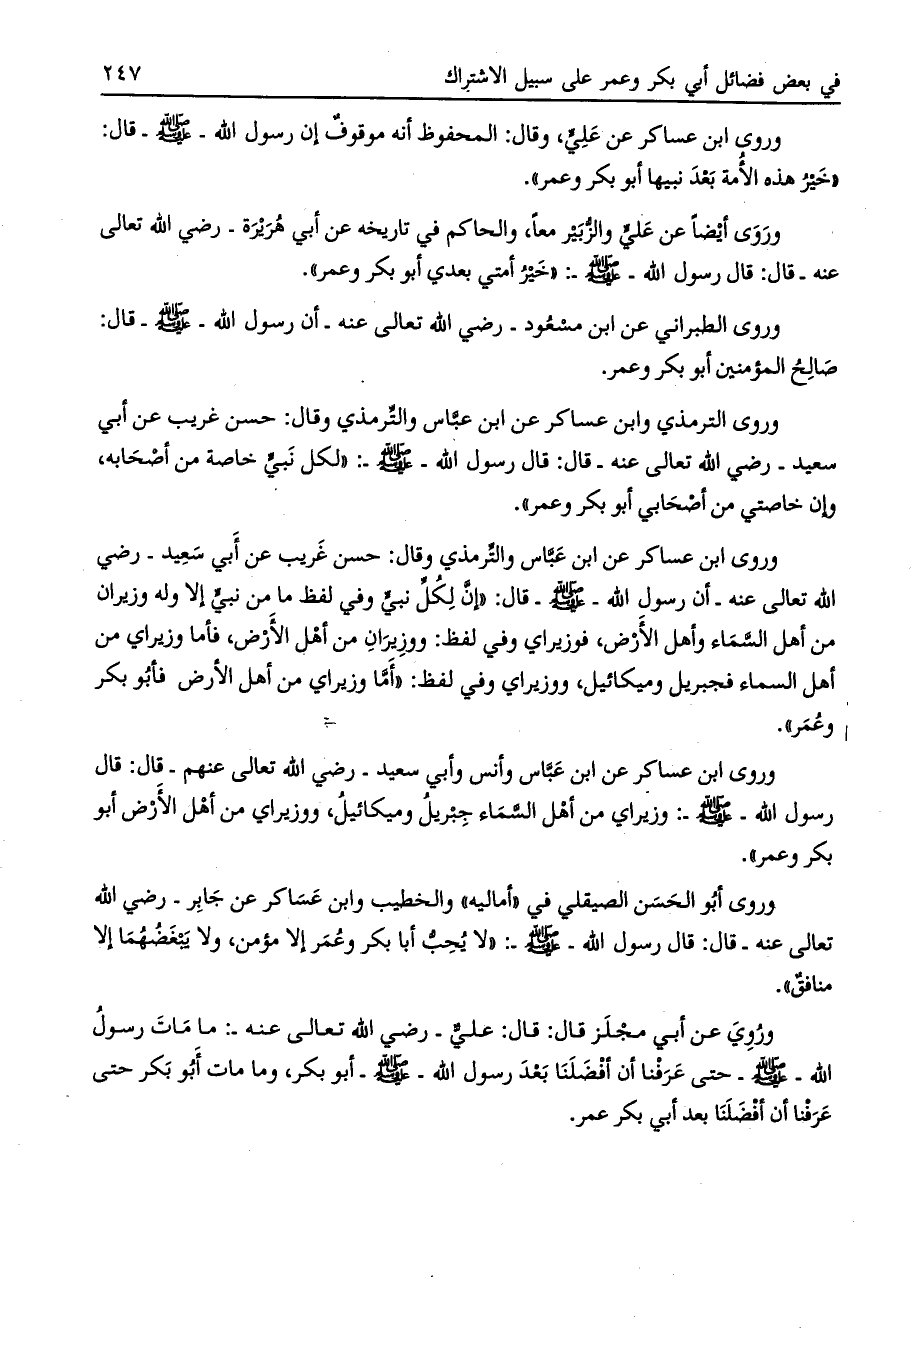 في بعض فضائل أبي بكر وعمر على سبيل الاشتراك ٢٤٧
وروى ابن عساكر عن عَلِيٍّ، وقال: المحفوظ أنه موقوفٌ إن رسول الله ـ ﷺ ـ قال:
«خَيْرُ هذه الأُمة بَعْدَ نبيها أبو بكر وعمر».
ورَوَى أيْضاً عن عَليٍّ والزُّبَيْر معاً، والحاكم في تاريخه عن أبي هُرَيْرَة ـ رضي الله تعالى
عنه ـ قال: قال رسول الله ـ ﷺ ـ: «خَيْرُ أمتي بعدي أبو بكر وعمر».
وروى الطبراني عن ابن مسْعُود ـ رضي الله تعالى عنه ـ أن رسول الله ـ ﷺ ـ قال:
صَالِحُ المؤمنين أبو بكر وعمر.
وروى الترمذي وابن عساكر عن ابن عبَّاس والتِّرمذي وقال: حسن غريب عن أبي
سعيد ـ رضي الله تعالى عنه ـ قال: قال رسول الله ـ ﷺ ـ: «لكل نَبيٍّ خاصة من أصْحَابه،
وإن خاصتي من أصْحَابي أبو بكر وعمر».
وروى ابن عساكر عن ابن عَبَّاس والتِّرمذي وقال: حسن غَريب عن أَبي سَعِيد ـ رضي
الله تعالى عنه ـ أن رسول الله ـ ﷺ ـ قال: «إنَّ لِكُلِّ نبيٍّ وفي لفظ ما من نبيٍّ إلا وله وزيران
من أهل السَّمَاء وأهل الأَرْض، فوزيراي وفي لفظ: ووزِيرَانِ من أهْل الأَرْض، فأما وزيراي من
أهل السماء فجبريل وميكائيل، ووزيراي وفي لفظ: «أَمَّا وزيراي من أهل الأرض فأبُو بكر
وعُمَر».
وروى ابن عساكر عن ابن عَبَّاس وأنس وأبي سعيد ـ رضي الله تعالى عنهم ـ قال: قال
رسول الله ـ ﷺ ـ: وزيراي من أهْل السَّمَاء جِبْريلُ وميكائيلُ، ووزيراي من أهْل الأَرْض أبو
بكر وعمر».
وروى أبُو الحَسَن الصيقلي في «أماليه» والخطيب وابن عَسَاكر عن جَابِر ـ رضي الله
تعالى عنه ـ قال: قال رسول الله ـ ﷺ ـ: «لا يُحِبُّ أبا بكر وعُمَر إلا مؤمن، ولا يَبْغَضُهُمَا إلا
منافقٌ».
ورُوِيَ عن أبي مجْلَز قال: قال: عليٍّ ـ رضي الله تعالى عنه ـ: ما مَاتَ رسولُ
الله ـ ﷺ ـ حتى عَرَفْنا أن أفْضَلَنَا بَعْدَ رسول الله ـ ﷺ ـ أبو بكر، وما مات أَبُو بَكر حتى
عَرَفْنا أن أفْضَلَنَا بعد أبي بكر عمر.